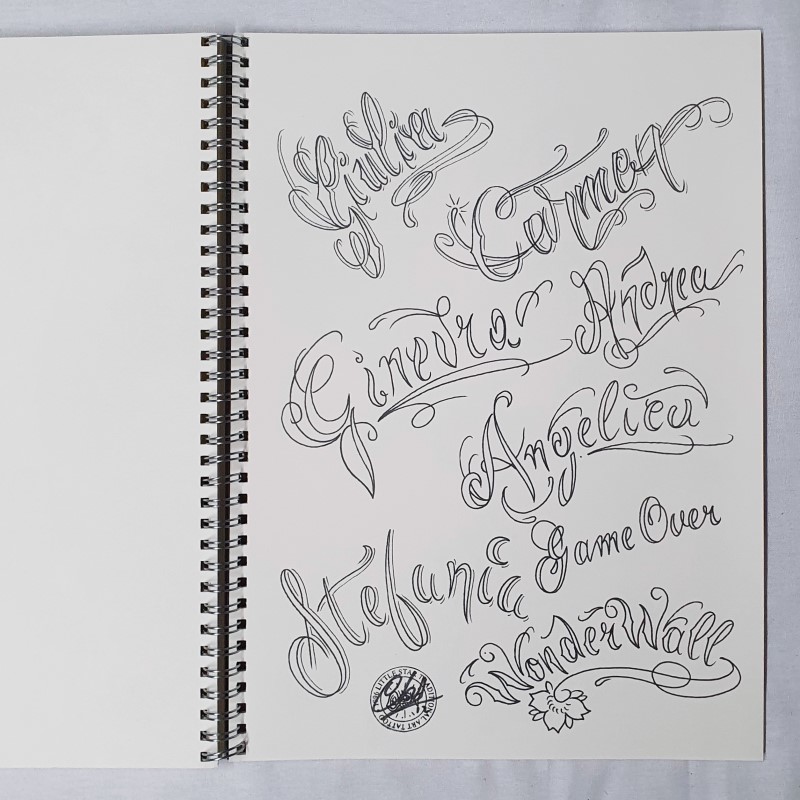 Giulia
Carmen
Ginevra
Andrea
Angelica
Stefania
Game Over
WonderWall
LITTLE STAR TRADITIONAL ART TATTOO